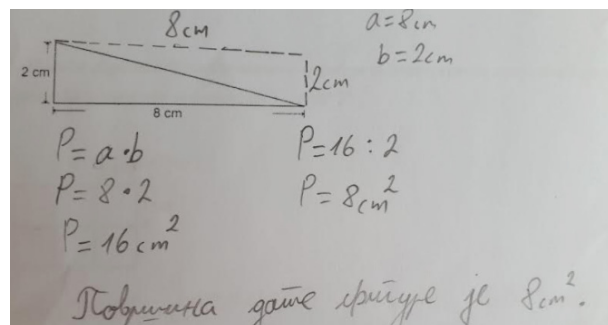 8cm
a=8cm
b=2cm
2 cm
2cm
8 cm
P=a·b
P=8·2
P=16cm²
P=16:2
P=8cm²
Површина дате фигуре је 8cm².